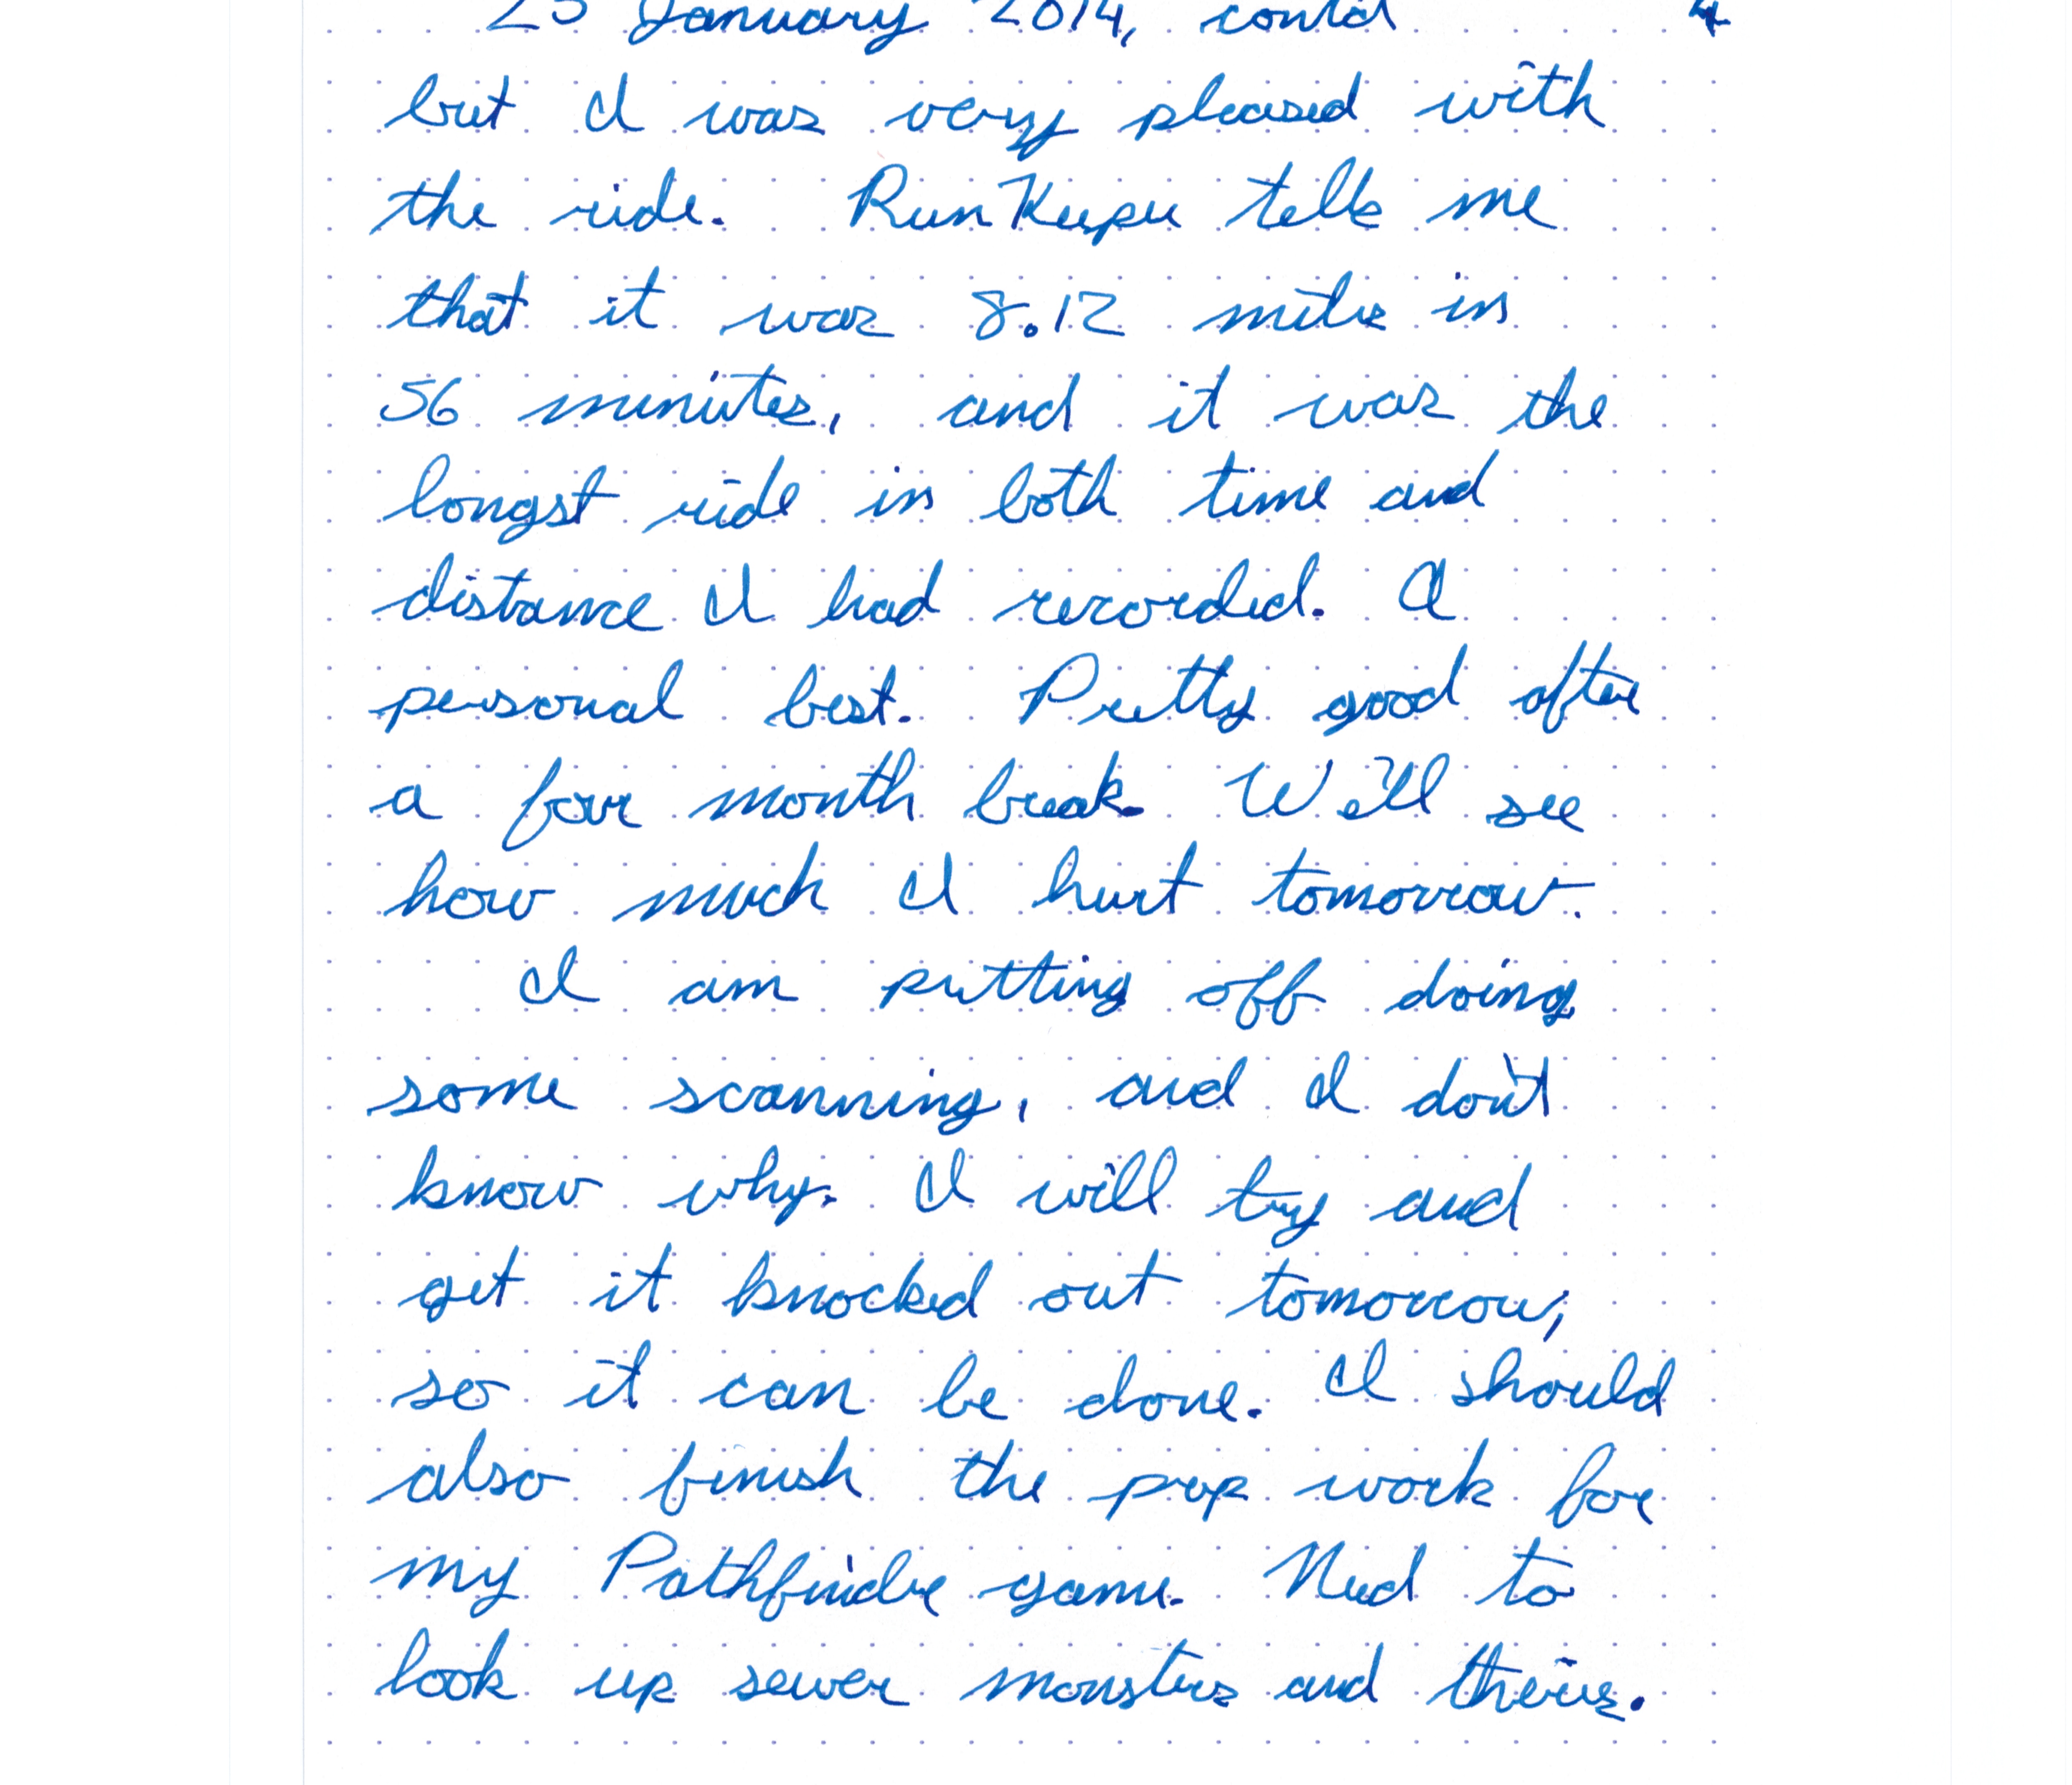 25 January 2014, contd 4
but I was very pleased with
the ride. RunKeeper tells me
that it was 8.12 miles in
56 minutes, and it was the
longst ride in both time and
distance I had recorded. A
personal best. Pretty good after
a four month break. We'll see
how much I hurt tomorrow.
I am putting off doing
some scanning, and I don't
know why. I will try and
get it knocked out tomorrow,
so it can be done. I should
also finish the prep work for
my Pathfinder game. Need to
look up sewer monsters and